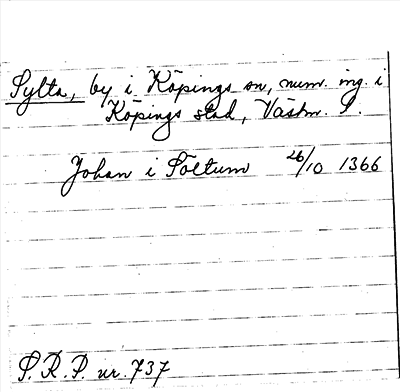 Sylta, by i Köpings sn, num. ing. i
Köpings stad, Västm. l.
Johan i Söltum 26/10 1366
S.R.P. nr. 737